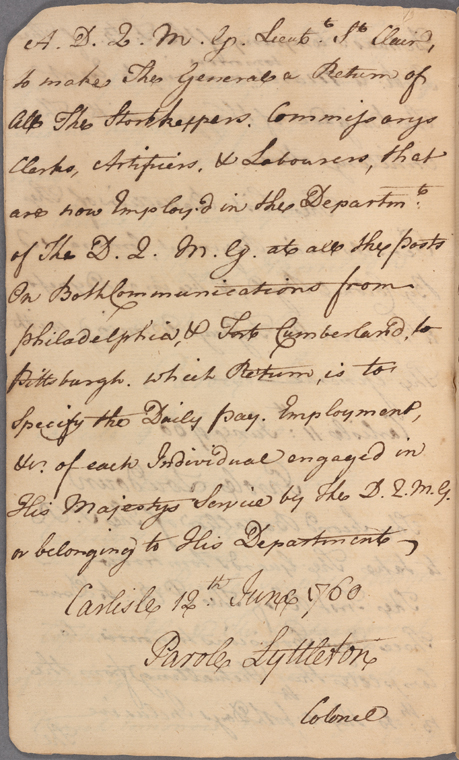 A. D. Q. M. G. Lieut.t St. Clair,
to make The General a Return of
All The Storekeppers. Commissarys
Clerks, Artificiers, & Labourers, that
are now Employ'd in the Departm.t
of The D. Q. M. G. at all the posts
On Both Communications from
philadelphia, & Fort Cumberland, to
Pittsburgh. which Return, is to
Specify the Daily pay. Employment,
&c. of each Individual engaged in
His Majestys Service by The D. Q. M. G.
or belonging to His Department
Carlisle 12th June 1760
Parole Lyttleton
Colonel